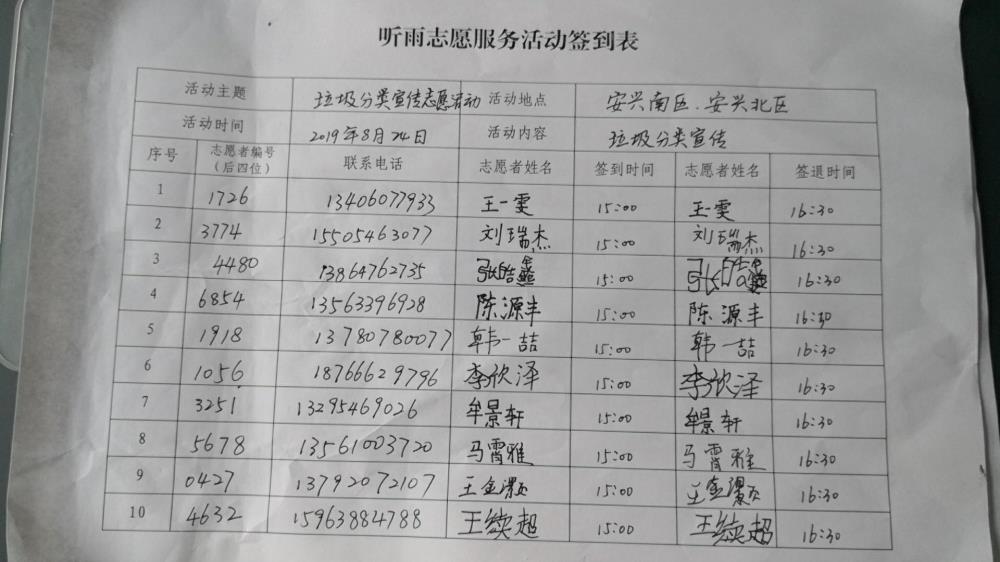 听雨志愿服务活动签到表
活动主题 垃圾分类宣传志愿活动 活动地点 安兴南区、安兴北区
活动时间 2019年8月24日 活动内容 垃圾分类宣传
序号 志愿者编号（后四位） 联系电话 志愿者姓名 签到时间 志愿者姓名 签退时间
1 1726 13406077933 王一雯 15:00 王一雯 16:30
2 3774 15505463077 刘瑞杰 15:00 刘瑞杰 16:30
3 4480 13864762735 张皓 15:00 张皓 16:30
4 6854 13563396928 陈源丰 15:00 陈源丰 16:30
5 1918 13780780077 韩一喆 15:00 韩一喆 16:30
6 1056 18766629796 李欣泽 15:00 李欣泽 16:30
7 3251 13295469026 牟景轩 15:00 牟景轩 16:30
8 5678 13561003720 马霄雅 15:00 马霄雅 16:30
9 0427 13792072107 王金灏 15:00 王金灏 16:30
10 4632 15963884788 王续超 15:00 王续超 16:30